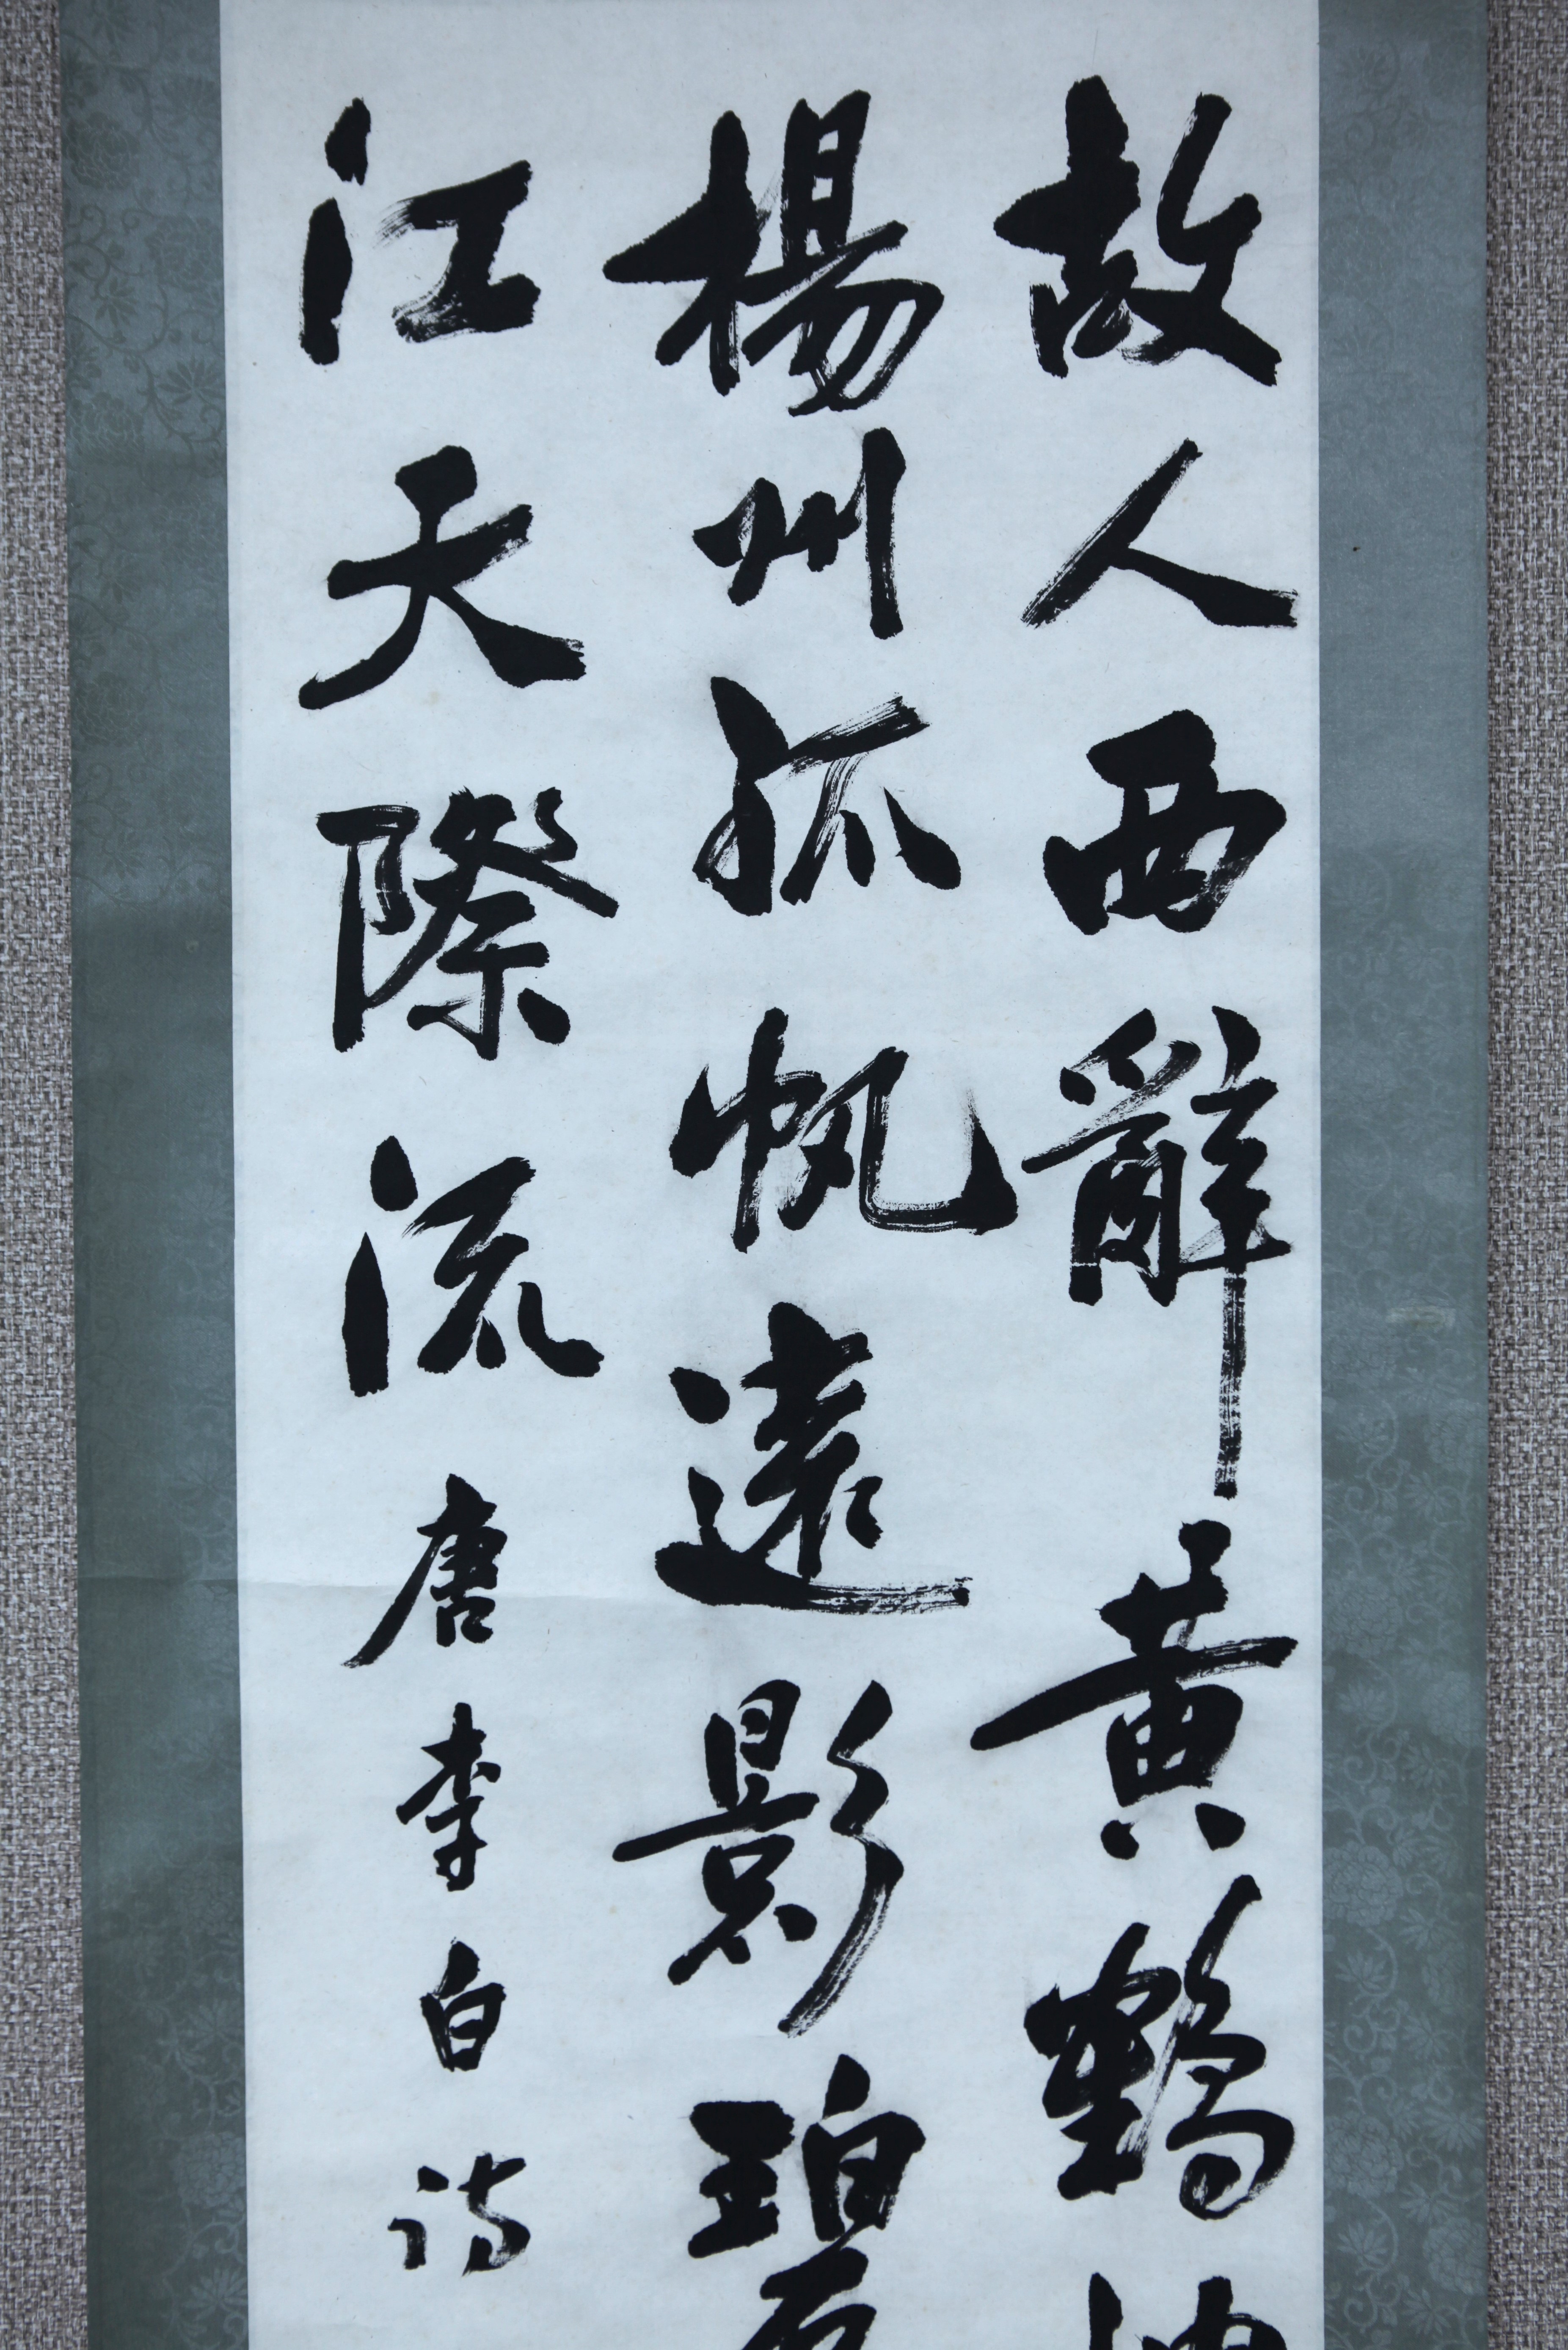 故人西辭黃鶴
楊州孤帆遠影碧
江天際流 唐李白诗